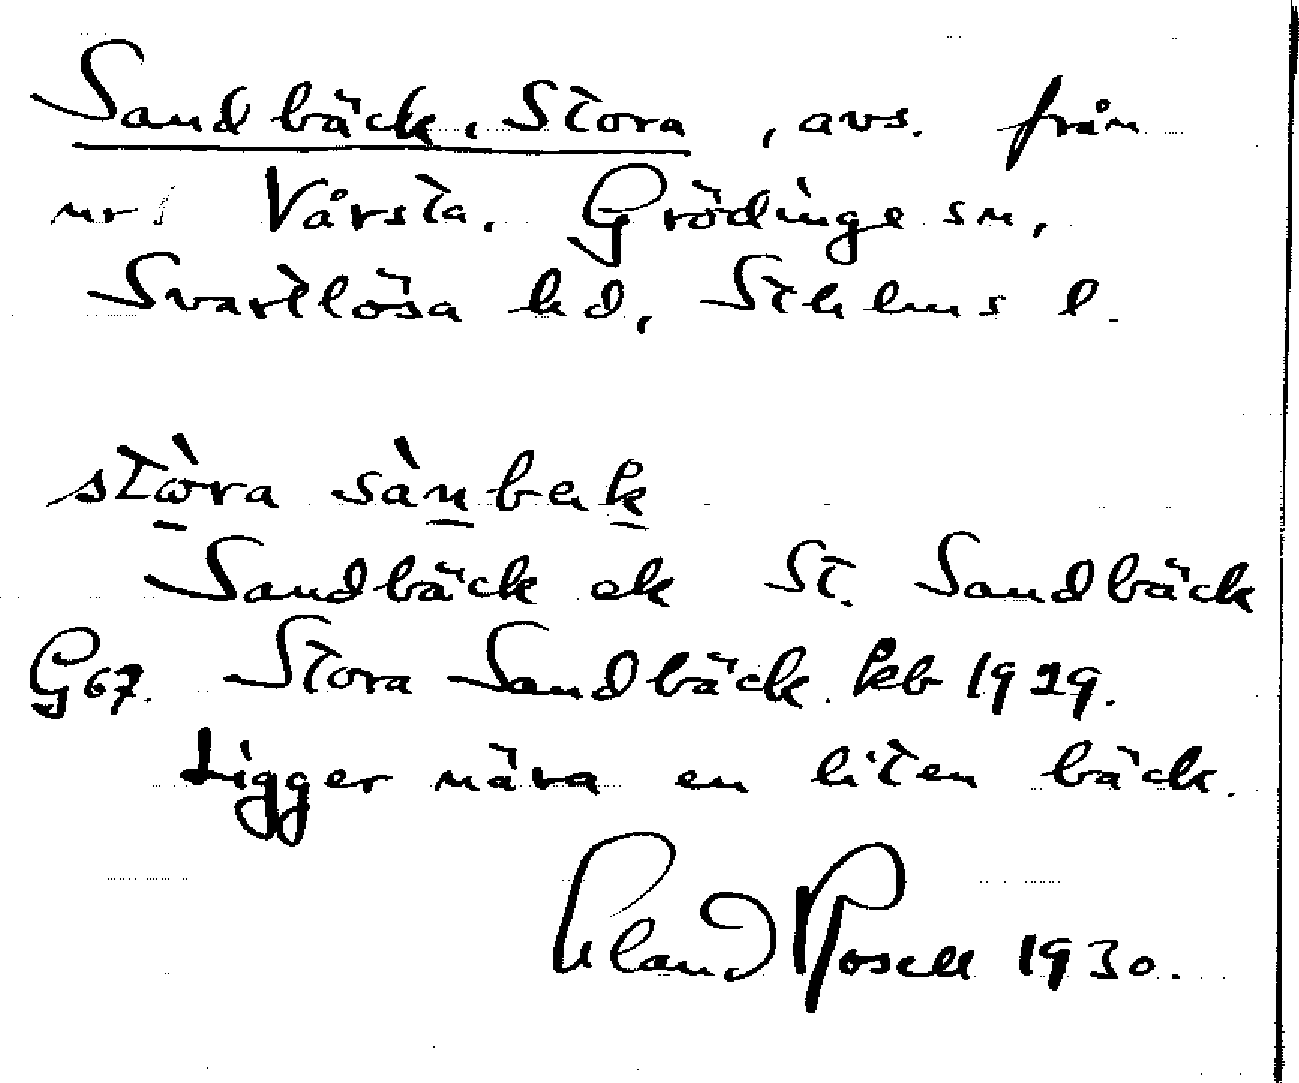 Sandbäck, Stora, avs. från
nr 1 Vårsta, Grödinge sn,
Svartlösa hd, Sthlms l.
stò̱ra sàṉbeḵ
Sandbäck ek St. Sandbäck
G67. Stora Sandbäck. kb 1929.
Ligger nära en liten bäck.
Rosell 1930.